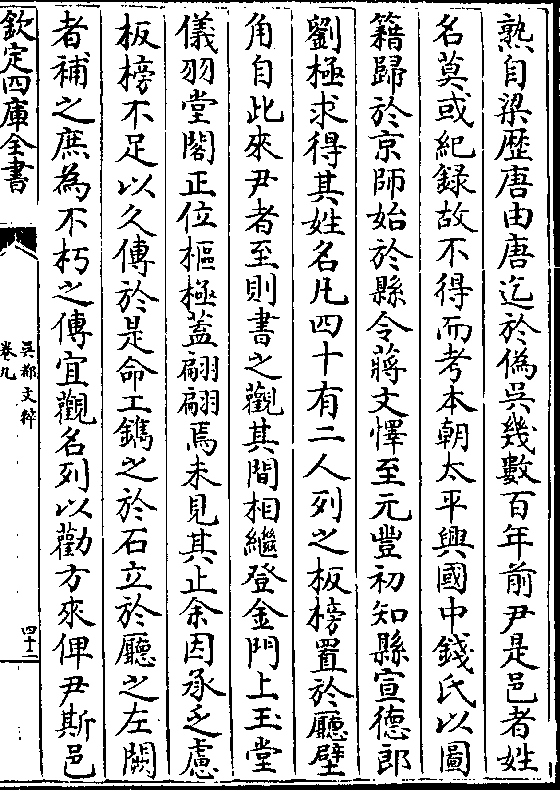 熟自梁歴唐由唐迄於偽吳幾數百年前尹是邑者姓
名莫或紀録故不得而考本朝太平興國中錢氏以圖
籍歸於京師始於縣令蔣文懌至元豐初知縣宣德郎
劉極求得其姓名凡四十有二人列之板榜置於廳壁
角自此來尹者至則書之觀其間相繼登金門上玉堂
儀羽堂閣正位樞極蓋翩翩焉未見其止余因承乏慮
板榜不足以久傳於是命工鐫之於石立於廳之左闕
者補之庶為不朽之傳宜觀名列以勸方來俾尹斯邑
欽定四庫全書
吳都文粹
卷九
四十二